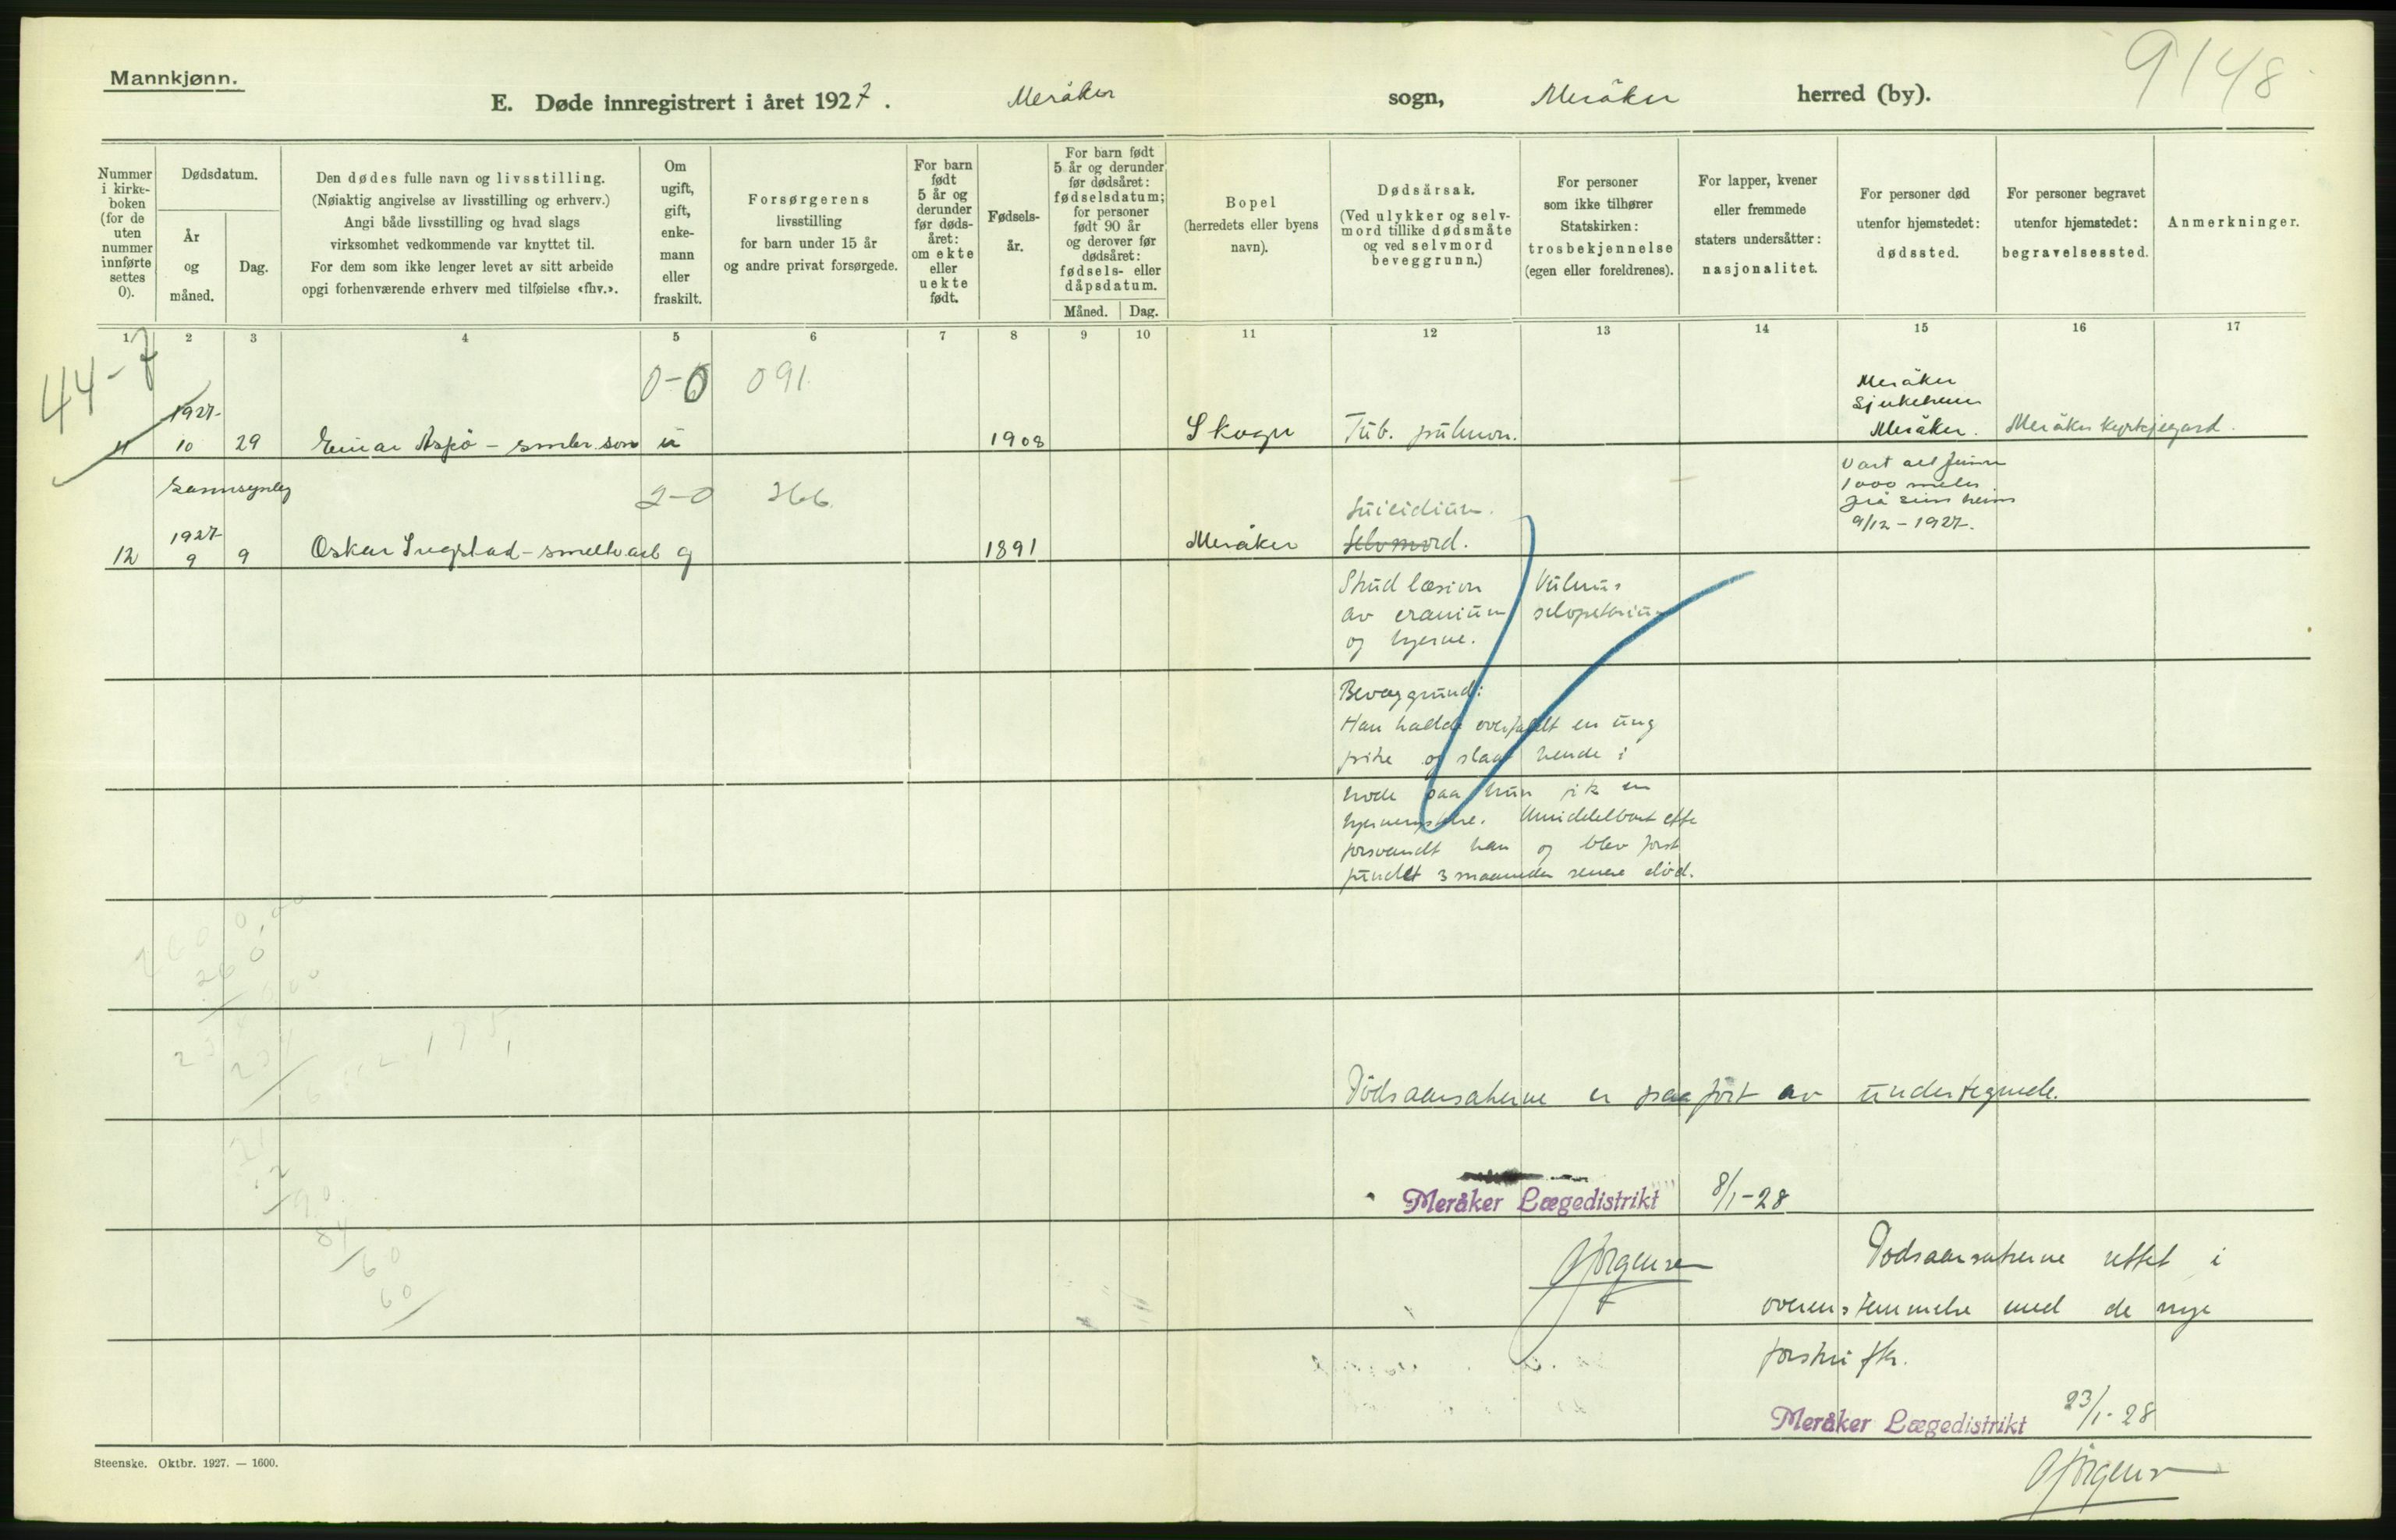 Mannkjønn.
9148
E. Døde innregistrert i året 1927. Meråker sogn, Meråker herred (by).
Nummer i kirke-boken (for de uten nummer innførte settes 0).
Dødsdatum.
År og måned.
Dag.
Den dødes fulle navn og livsstilling.
(Nøiaktig angivelse av livsstilling og erhverv.)
Angi både livsstilling og hvad slags
virksomhet vedkommende var knyttet til.
For dem som ikke lenger levet av sitt arbeide
opgi forhenværende erhverv med tilføielse «fhv.».
Om ugift, gift, enke-mann eller fraskilt.
Forsørgerens
livsstilling
for barn under 15 år
og andre privat forsørgede.
For barn født 5 år og derunder før døds-året: om ekte eller uekte født.
Fødsels-år.
For barn født
5 år og derunder
før dødsåret:
fødselsdatum;
for personer
født 90 år
og derover før
dødsåret:
fødsels- eller
dåpsdatum.
Måned. Dag.
Bopel
(herredets eller byens
navn).
Dødsårsak.
(Ved ulykker og selv-
mord tillike dødsmåte
og ved selvmord
beveggrunn.)
For personer
som ikke tilhører
Statskirken:
trosbekjennelse
(egen eller foreldrenes).
For lapper, kvener
eller fremmede
staters undersåtter:
nasjonalitet.
For personer død
utenfor hjemstedet:
dødssted.
For personer begravet
utenfor hjemstedet:
begravelsessted.
Anmerkninger.
1 2 3 4 5 6 7 8 9 10 11 12 13 14 15 16 17
44-7
0-0 091
Meråker
Sjukeheim
1927
11 10 29 Einar Aspö - son u 1908 Skogn Tub. pulmon. Meråker. Meråker kyrkjegard.
Sannsynleg 2-0 366
Vart att funnen
1000 meter
frå sin heim
9/12-1927.
Suicidium.
1927
12 9 9 Oskar - smelteverk g 1891 Meråker Selvmord.
Skud læsion Vulnus
av cranium sclopetarium
og hjerne.
Bevæggrund:
Han hadde overfaldt en ung
pike og slaat hende i
hode saa hun fik en
hjernerystelse. Umiddelbart efter
forsvandt han og blev først
fundet 3 maaneder senere død.
Dødsaarsakerne er paaført av undertegnede.
Meråker Lægedistrikt 8/1-28
Jørgensen
Dødsaarsakerne rettet i
overensstemmelse med de nye
forskrifter.
Meråker Lægedistrikt 23/1-28
Jørgensen
Steenske. Oktbr. 1927. — 1600.